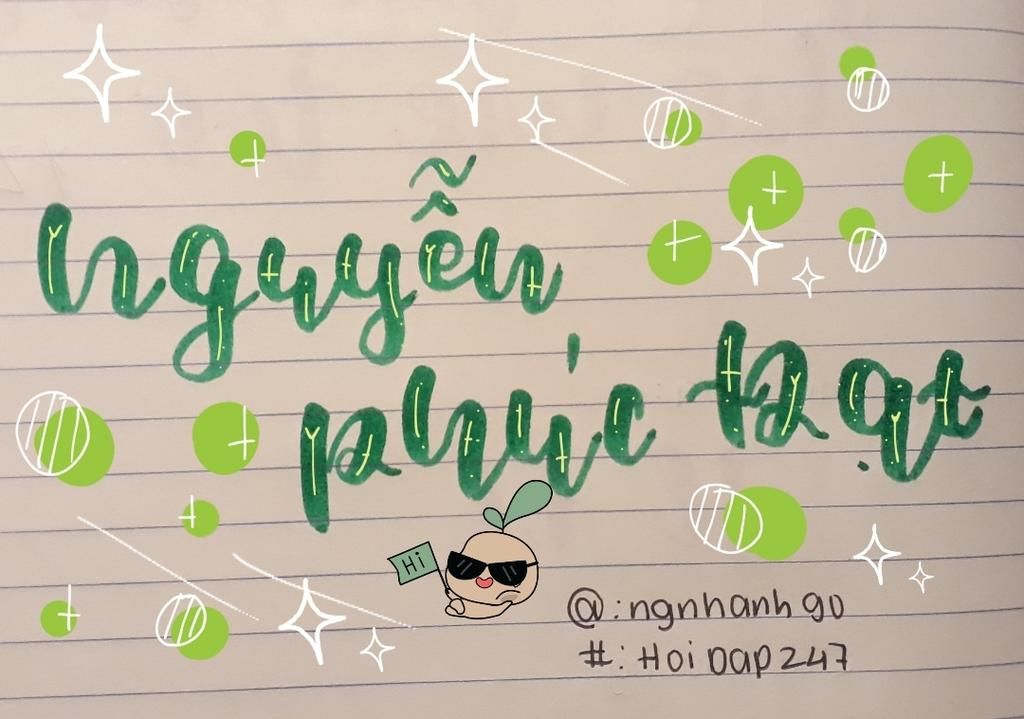 nguyễn
phúc Đạt
Hi
@:ngnhanhgu
#:HoiDap247